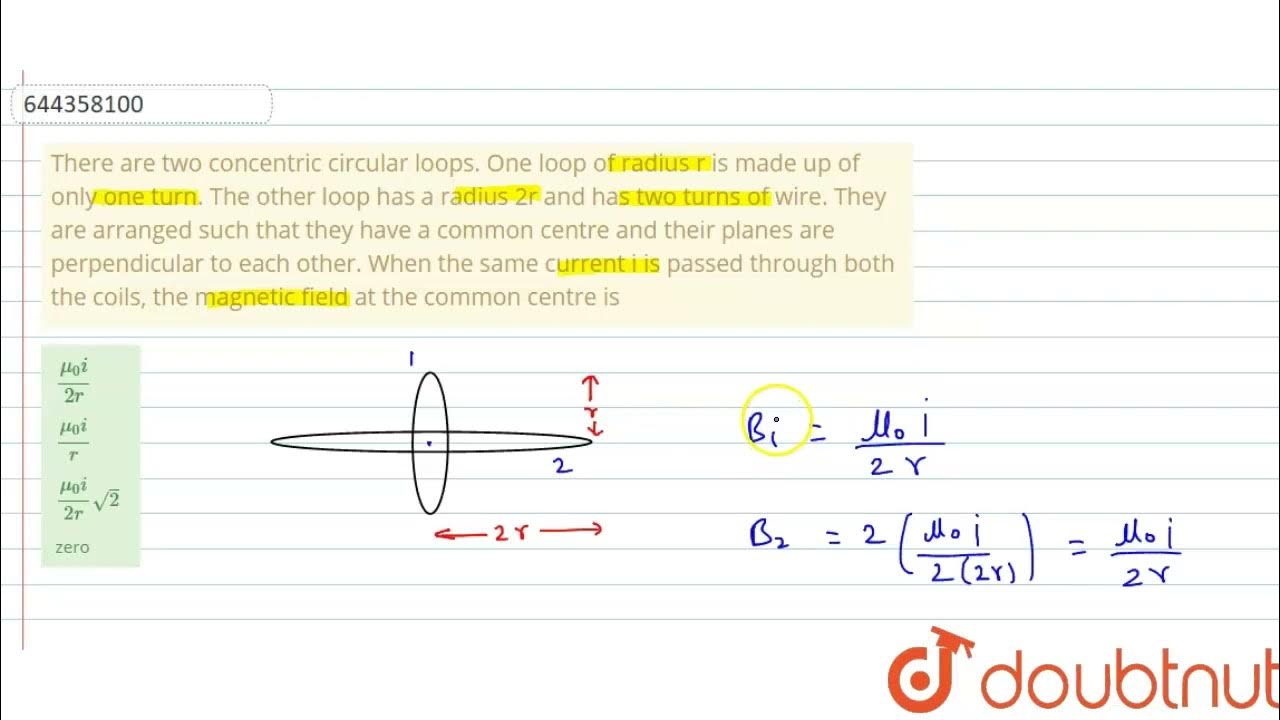 644358100
There are two concentric circular loops. One loop of radius r is made up of
only one turn. The other loop has a radius 2r and has two turns of wire. They
are arranged such that they have a common centre and their planes are
perpendicular to each other. When the same current i is passed through both
the coils, the magnetic field at the common centre is
μ₀i/2r
μ₀i/r
μ₀i/2r √2
zero
1
r
2
2r
B₁ = μ₀ i / 2 r
B₂ = 2 (μ₀ i / 2(2r)) = μ₀ i / 2r
doubtnut